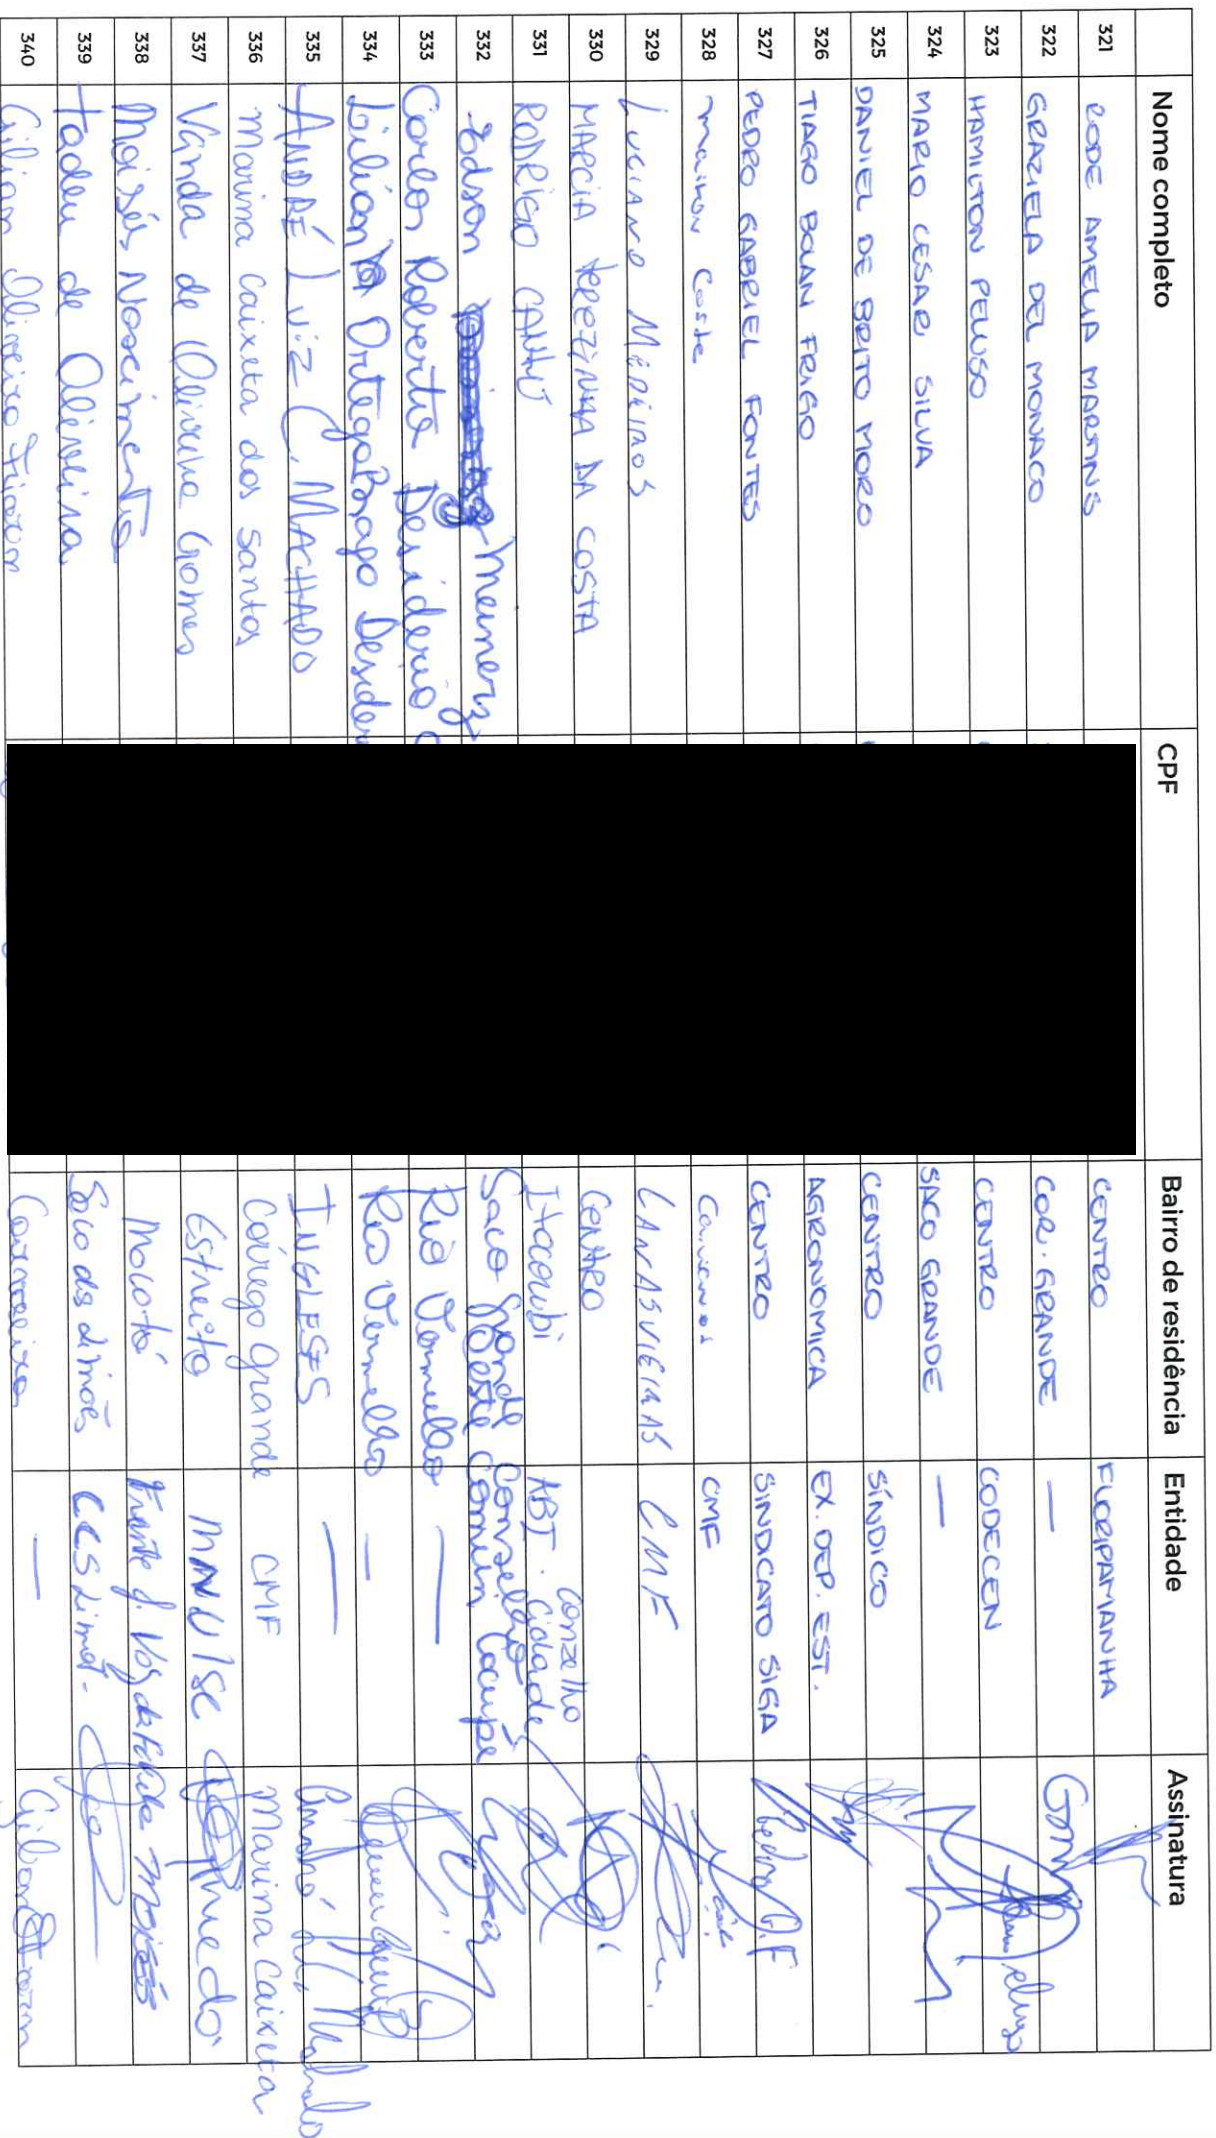 Nome completo CPF Bairro de residência Entidade Assinatura
321 RODE AMELIA MARTINS CENTRO FLORIPAMANHA
322 GRAZIELA DEL MONACO COR. GRANDE —
323 HAMILTON PELUSO CENTRO CODECEN
324 MARIO CESAR SILVA SACO GRANDE —
325 DANIEL DE BRITO MORO CENTRO SÍNDICO
326 TIAGO BOLAN FRIGO AGRONOMICA EX. DEP. EST.
327 PEDRO GABRIEL FONTES CENTRO SINDICATO SIGA Pedro G.F
328 Maicon Costa CMF
329 Luciano Medeiros CANASVIEIRAS CMF
330 MARCIA TEREZINHA DA COSTA CENTRO
331 RODRIGO CANTÚ Itacorubi ABT. Conselho Cidade
332 Edson Saco Grande Conselho Comum Cacupé
333 Carlos Roberto Desiderio Rio Vermelho —
334 Lilian Ortega Desider Rio Vermelho —
335 ANDRÉ LUIZ C. MACHADO INGLESES — André L. C. Machado
336 Marina Caixeta dos Santos Córrego Grande CMF Marina Caixeta
337 Vanda de Oliveira Gomes Estreito MNU/SC
338 Moisés Nascimento Mocotó Moisés
339 Tadeu de Oliveira Saco dos Limões CCS Limões
340 Gilian Oliveira —